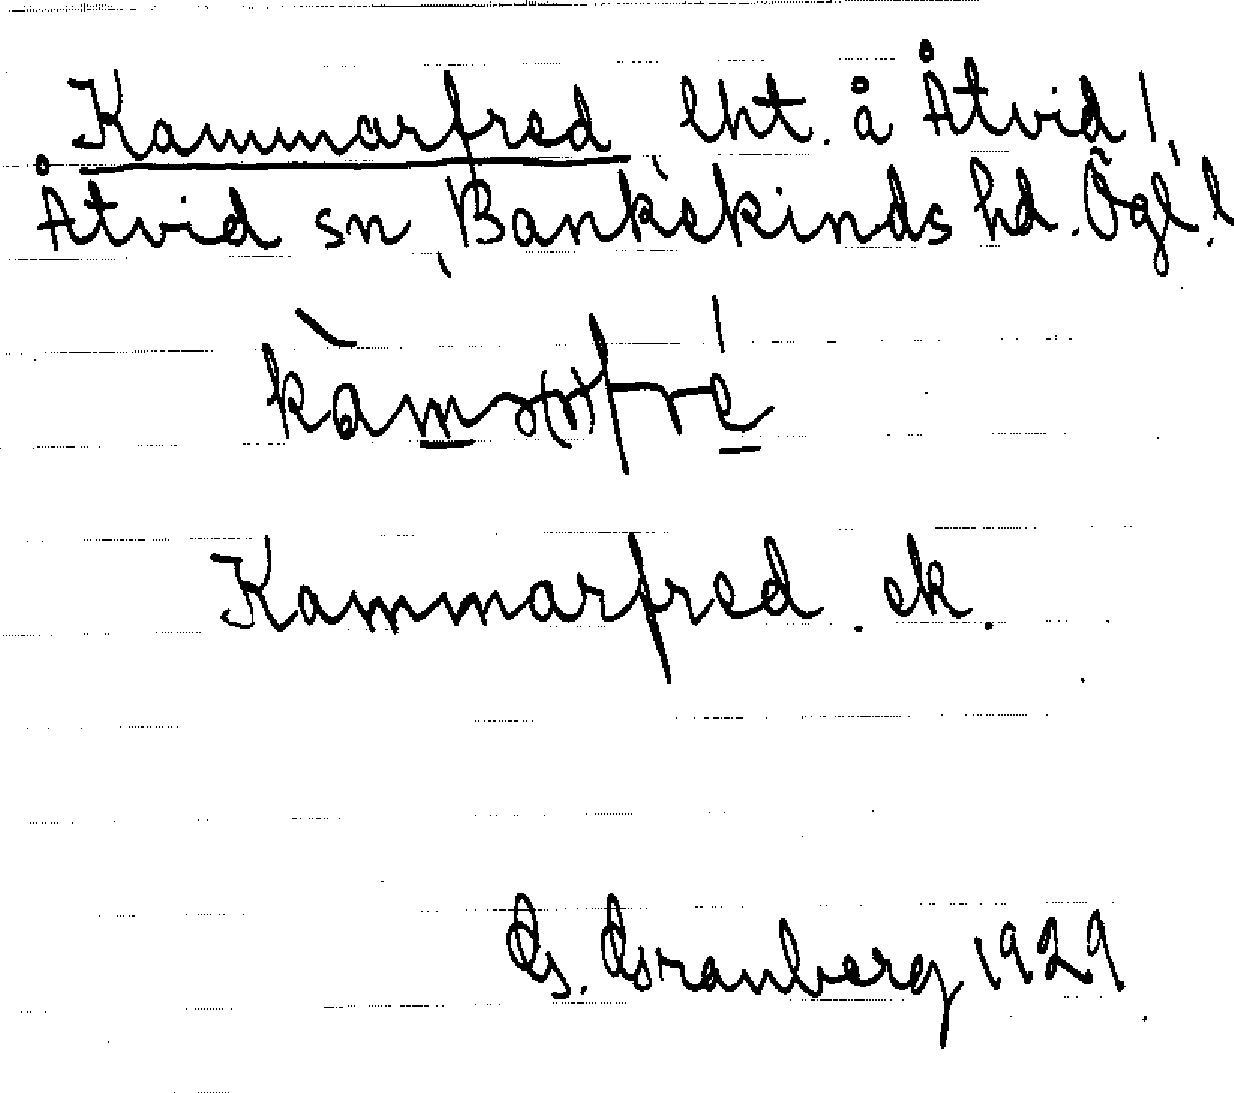 Kammarfred lht. å Åtvid,
Åtvid sn, Bankekinds hd. Ögl.
kàmar(r)fré
Kammarfred. ek.
G. Granberg 1929